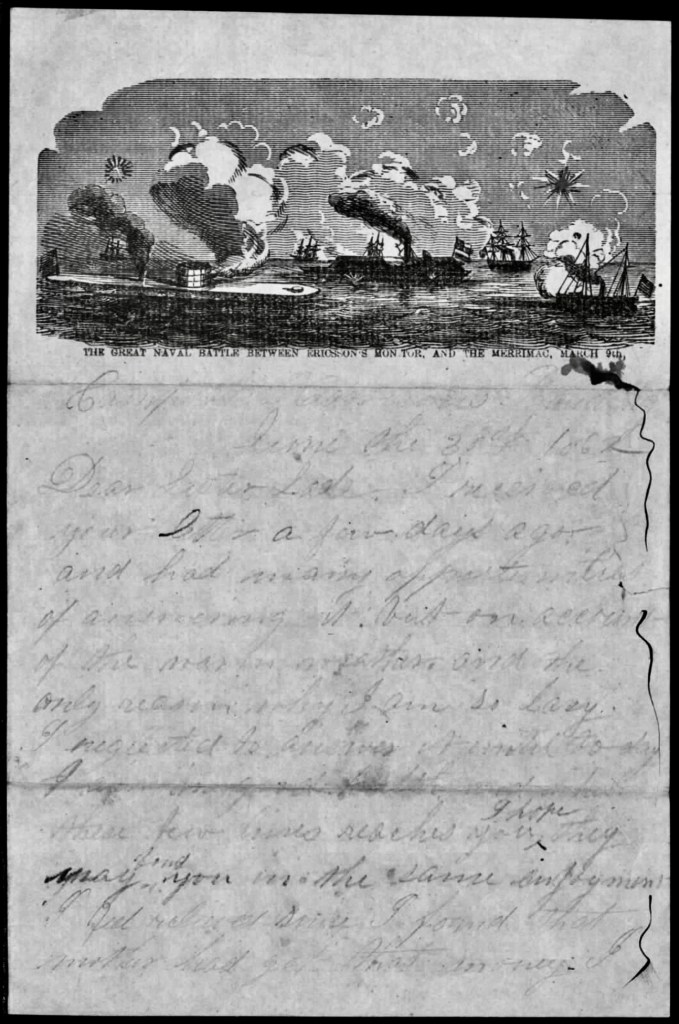 THE GREAT NAVAL BATTLE BETWEEN ERICSSON'S MONITOR, AND THE MERRIMAC, MARCH 9th,
Camp
June the 1862
Dear Sister I received
your letter a few days ago
and had many opportunities
of answering it but on account
of the warm weather and the
only reason why I am so lazy.
I neglected to answer it until to day
I am in good
these few lines reaches you I hope they
may find you in the same enjoyment
I feel relieved since I found that
mother had got that money. I